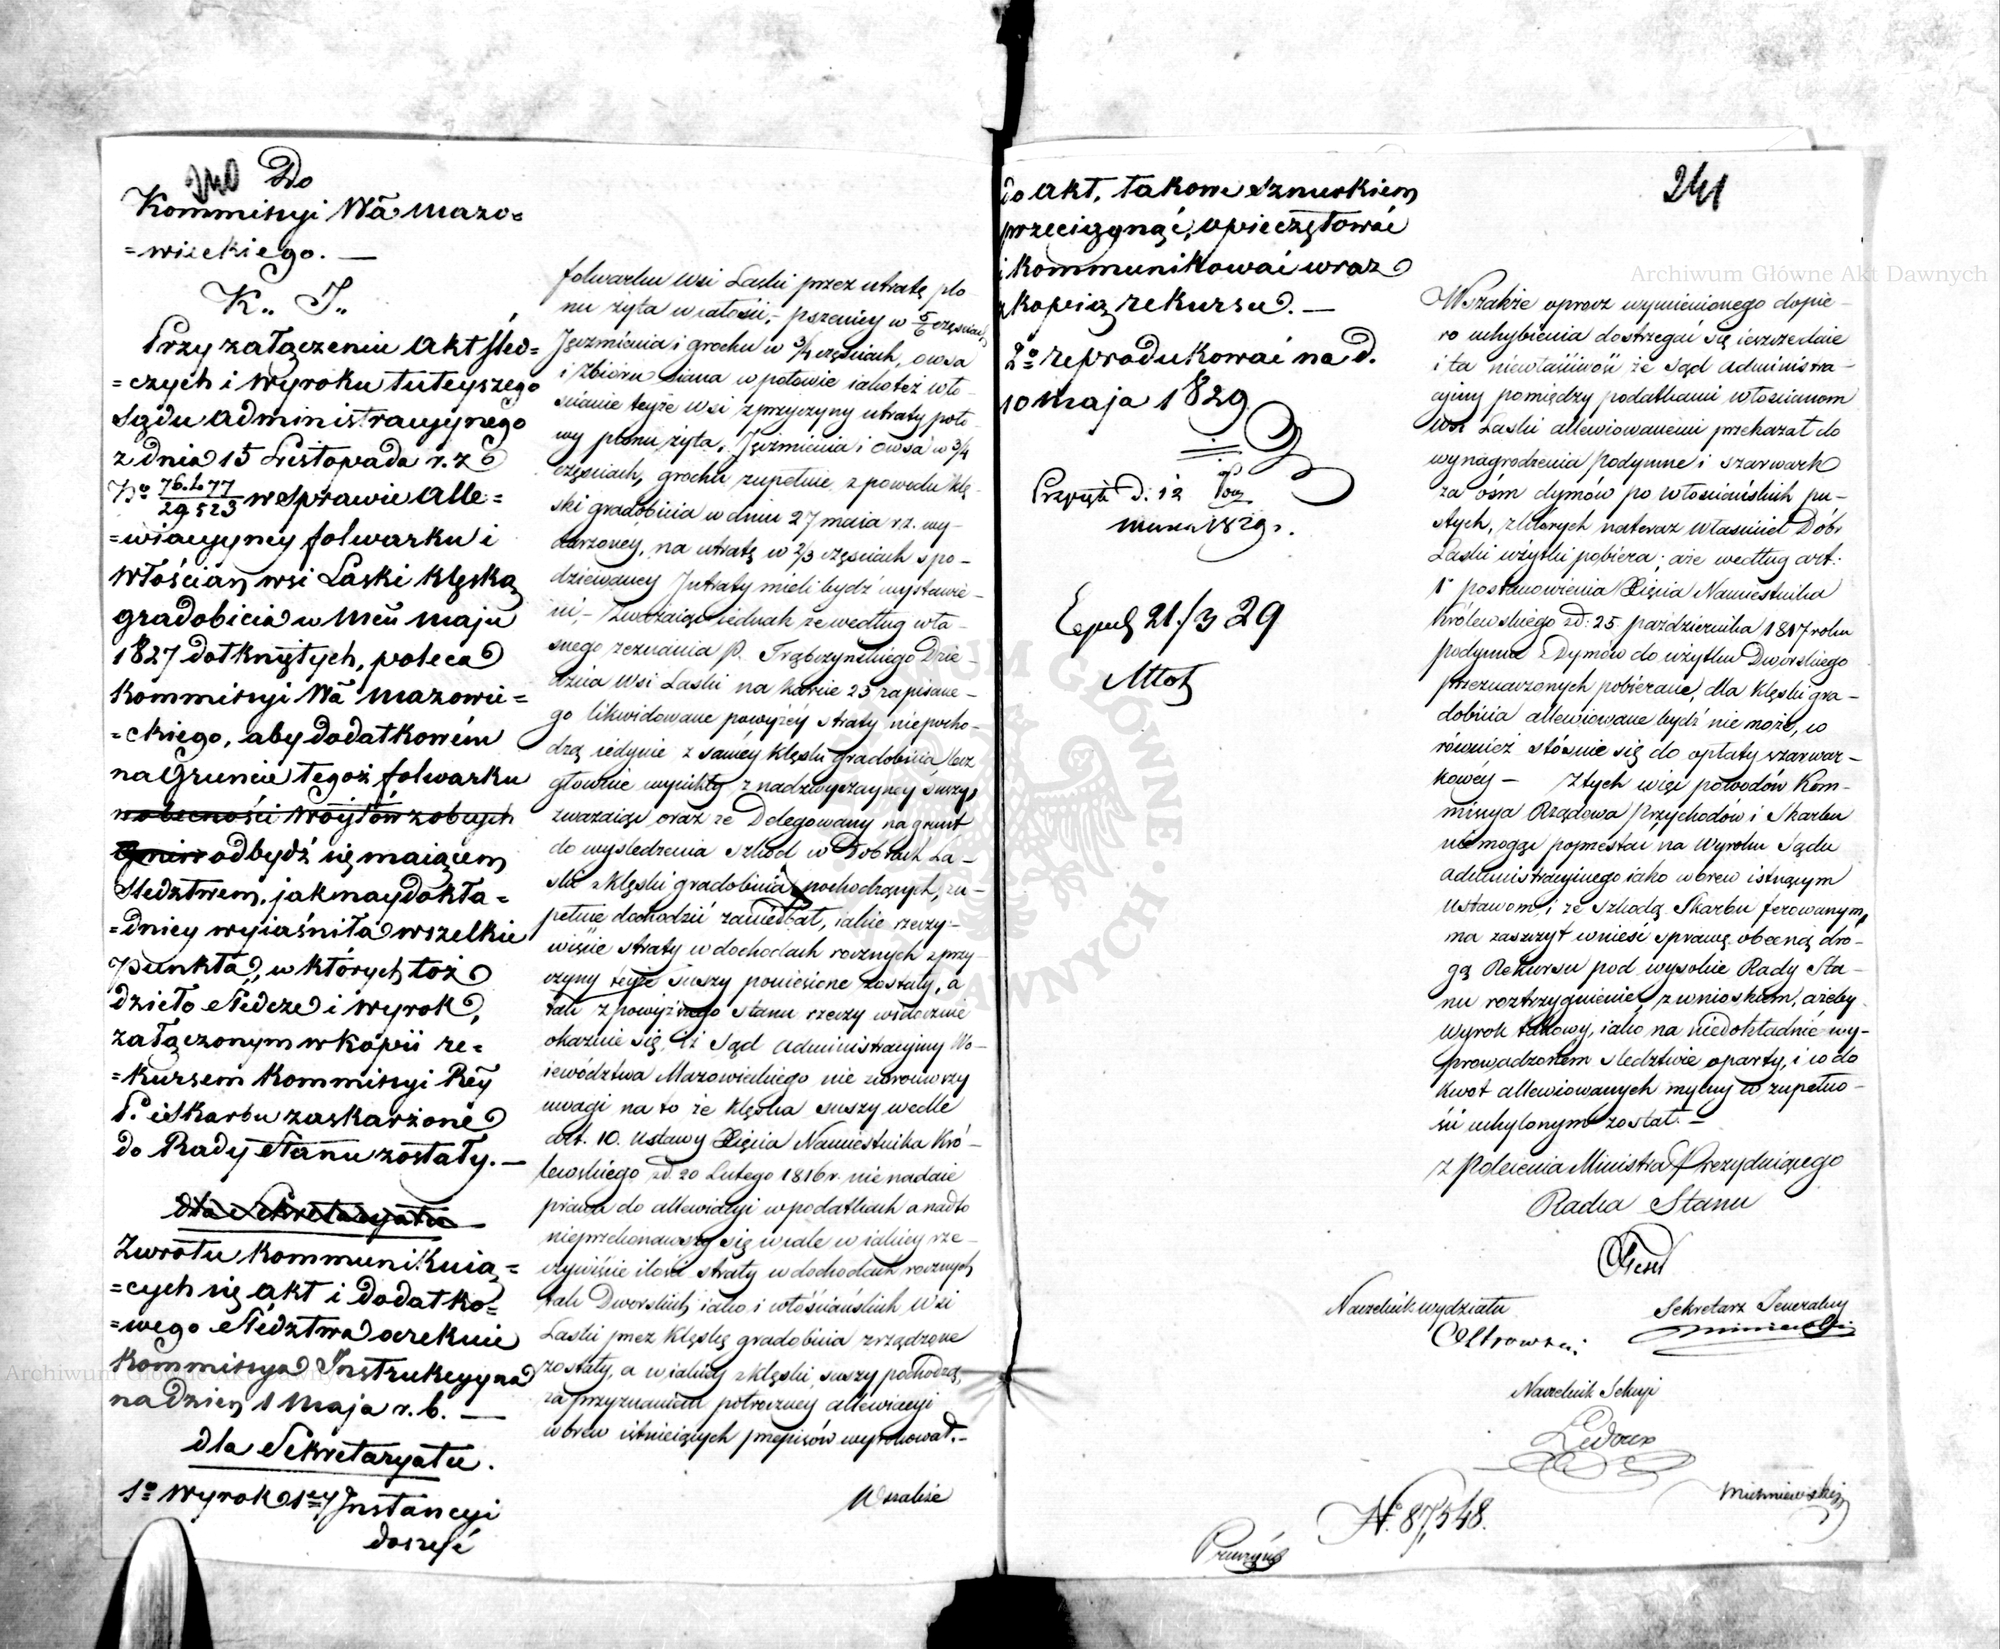 240
Do
Kommissyi Wa Mazo=
=wieckiego. —
K. I.
Przy załączeniu akt śled=
=czych i wyroku tuteyszego
Sądu Administracyynego
z dnia 15 Listopada r. z.
No 76.477/29523 w sprawie alle=
=wiacyyney folwarku i
włościan wsi Laski klęską
gradobicia w Mcu Maju
1827 dotkniętych, poleca
Kommissyi Wa Mazowie=
=ckiego, aby dodatkowém
na Gruncie tegoż folwarku
w obecności Wóytów z obuch
Gmin odbydź się maiącem
Sledztwem, jak naydokła=
=dniey wyiaśniła wszelkie
punkta, w których toż
dzieło śledcze i wyrok,
załączonym w kopii re=
=kursem Kommissyi Rey
P. i Skarbu zaskarżone
do Rady Stanu zostały. —
dla Sekretaryatu
Zwrotu kommunikuią=
=cych się akt i dodatko=
=wego śledztwa oczekuie
Kommissya Instrukcyyna
na dzień 1 Maja r. b. —
dla Sekretaryatu.
1o Wyrok 1ey Instancyi
doszyć
folwarku wsi Laski przez utratę plo-
nu żyta w całości, – pszenicy w 5/6 częściach,
Jęczmienia i grochu w 3/4 częściach, owsa
i zbioru siana w połowie iako też wło-
ścianie teyże wsi z przyczyny utraty poło-
wy plonu żyta, Jęczmienia i owsa w 3/4
częściach, grochu zupełnie z powodu klę-
ski gradobicia w dniu 27 maia r.z. wy-
darzoney, na utratę w 2/3 częściach spo-
dziewaney Jntraty mieli bydź wystawie-
ni, – Zważaiąc iednak że według wła-
snego zeznania P. Trąbczyńskiego Dzie-
dzica wsi Laski na karcie 23 zapisane-
go likwidowane powyżéy straty niepocho-
dzą iedynie z saméy klęski gradobicia, lecz
głównie wynikły z nadzwyczayney suszy,
zważaiąc oraz że Delegowany na grunt
do wyśledzenia szkod w Dobrach La-
ski z klęski gradobicia pochodzących, zu-
pełnie dochodzić zaniedbał, iakie rzeczy-
wiście straty w dochodach rocznych z przy-
czyny teyże suszy poniesione zostały, a
tak z powyższego stanu rzeczy widocznie
okazuie się, iż Sąd Administracyiny Wo-
iewództwa Mazowieckiego nie zwróciwszy
uwagi na to że klęska suszy wedle
art. 10. Ustawy Xięcia Namiestnika Kró-
lewskiego zd. 20 Lutego 1816 r. nie nadaie
prawa do allewiacyi w podatkach a nadto
nieprzekonawszy się wcale w iakiey rze-
czywiście ilości straty w dochodach rocznych
tak Dworskich iako i włościańskich wsi
Laski przez klęskę gradobicia zrządzone
zostały, a w iakiey z klęski suszy pochodzą,
za przyznaniem półroczney allewiacyi
wbrew istnieiących przepisów wyrokował. –
Wszakże
241
do akt, takowe sznurkiem
przeciągnąć, opieczętować
i kommunikować wraz
z kopią rekursu. —
2o reprodukować na d.
10 Maja 1829
Przyięto d. 12
marca 1829 r.
Exped 21/3 29
Wszakże oprocz wymienionego dopie-
ro uchybienia dostrzegać się ieszcze daie
i ta niewłaściwość że Sąd Administra-
cyiny pomiędzy podatkami włościanom
wsi Laski allewiowanemi przekazał do
wynagrodzenia Podymne i szarwark
za ośm dymów po włościańskich pu-
stych, z których nateraz właściciel Dóbr
Laski użytki pobiera; a że według art:
1o postanowienia Xięcia Namiestnika
Królewskiego zd: 25 października 1817 roku
podymne z Dymów do użytku Dworskiego
przeznaczonych pobierane, dla klęski gra-
dobicia allewiowane bydź nie może, co
również stósuie się do opłaty szarwar-
kowéy – Z tych więc powodów Kom-
missya Rządowa Przychodów i Skarbu
niemogąc poprzestać na Wyroku Sądu
Administracyinego iako wbrew istnącym
Ustawom, i ze szkodą Skarbu ferowanym,
ma zaszczyt wnieść sprawę obecną dro-
gą Rekursu pod wysokie Rady Sta-
nu roztrzygnienie, z wnioskiem, ażeby
wyrok takowy, iako na niedokładnie wy-
prowadzonem śledztwie oparty, i co do
kwot allewiowanych mylny w zupełno-
ści uchylonym został. –
z Polecenia Ministra Prezyduiącego
Radca Stanu
Naczelnik wydziału
Ostrowski
Sekretarz Jeneralny
Naczelnik Sekcyi
Ledoux
Miszniewski
No 87,548.